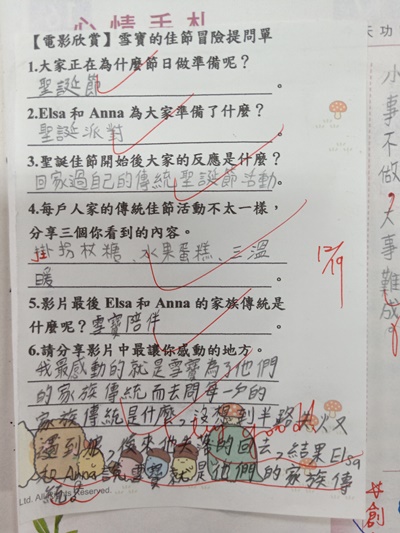 心情手札
【電影欣賞】雪寶的佳節冒險提問單
1.大家正在為什麼節日做準備呢？
聖誕節。
2.Elsa 和 Anna 為大家準備了什麼？
聖誕派對。
3.聖誕佳節開始後大家的反應是什麼？
回家過自己的傳統聖誕節活動。
4.每戶人家的傳統佳節活動不太一樣，
分享三個你看到的內容。
掛拐杖糖、水果蛋糕、三溫
暖。
5.影片最後 Elsa 和 Anna 的家族傳統是
什麼呢？雪寶陪伴。
6.請分享影片中最讓你感動的地方。
我最感動的就是雪寶為了他們
的家族傳統而去問每一戶的
家族傳統是什麼，沒想到半路失火又
遇到狼，後來他的回去，結果Elsa
和Anna說雪寶就是他們的家族傳
統。
Ltd. All Rights Reserved.
12/19
小事不做，大事難成。